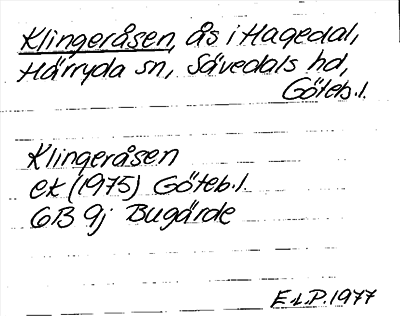 Klingeråsen, ås i Hagedal,
Härryda sn, Sävedals hd,
Göteb.l.
Klingeråsen
ek (1975) Göteb.l.
6B 9j Bugärde
E.L.P. 1977